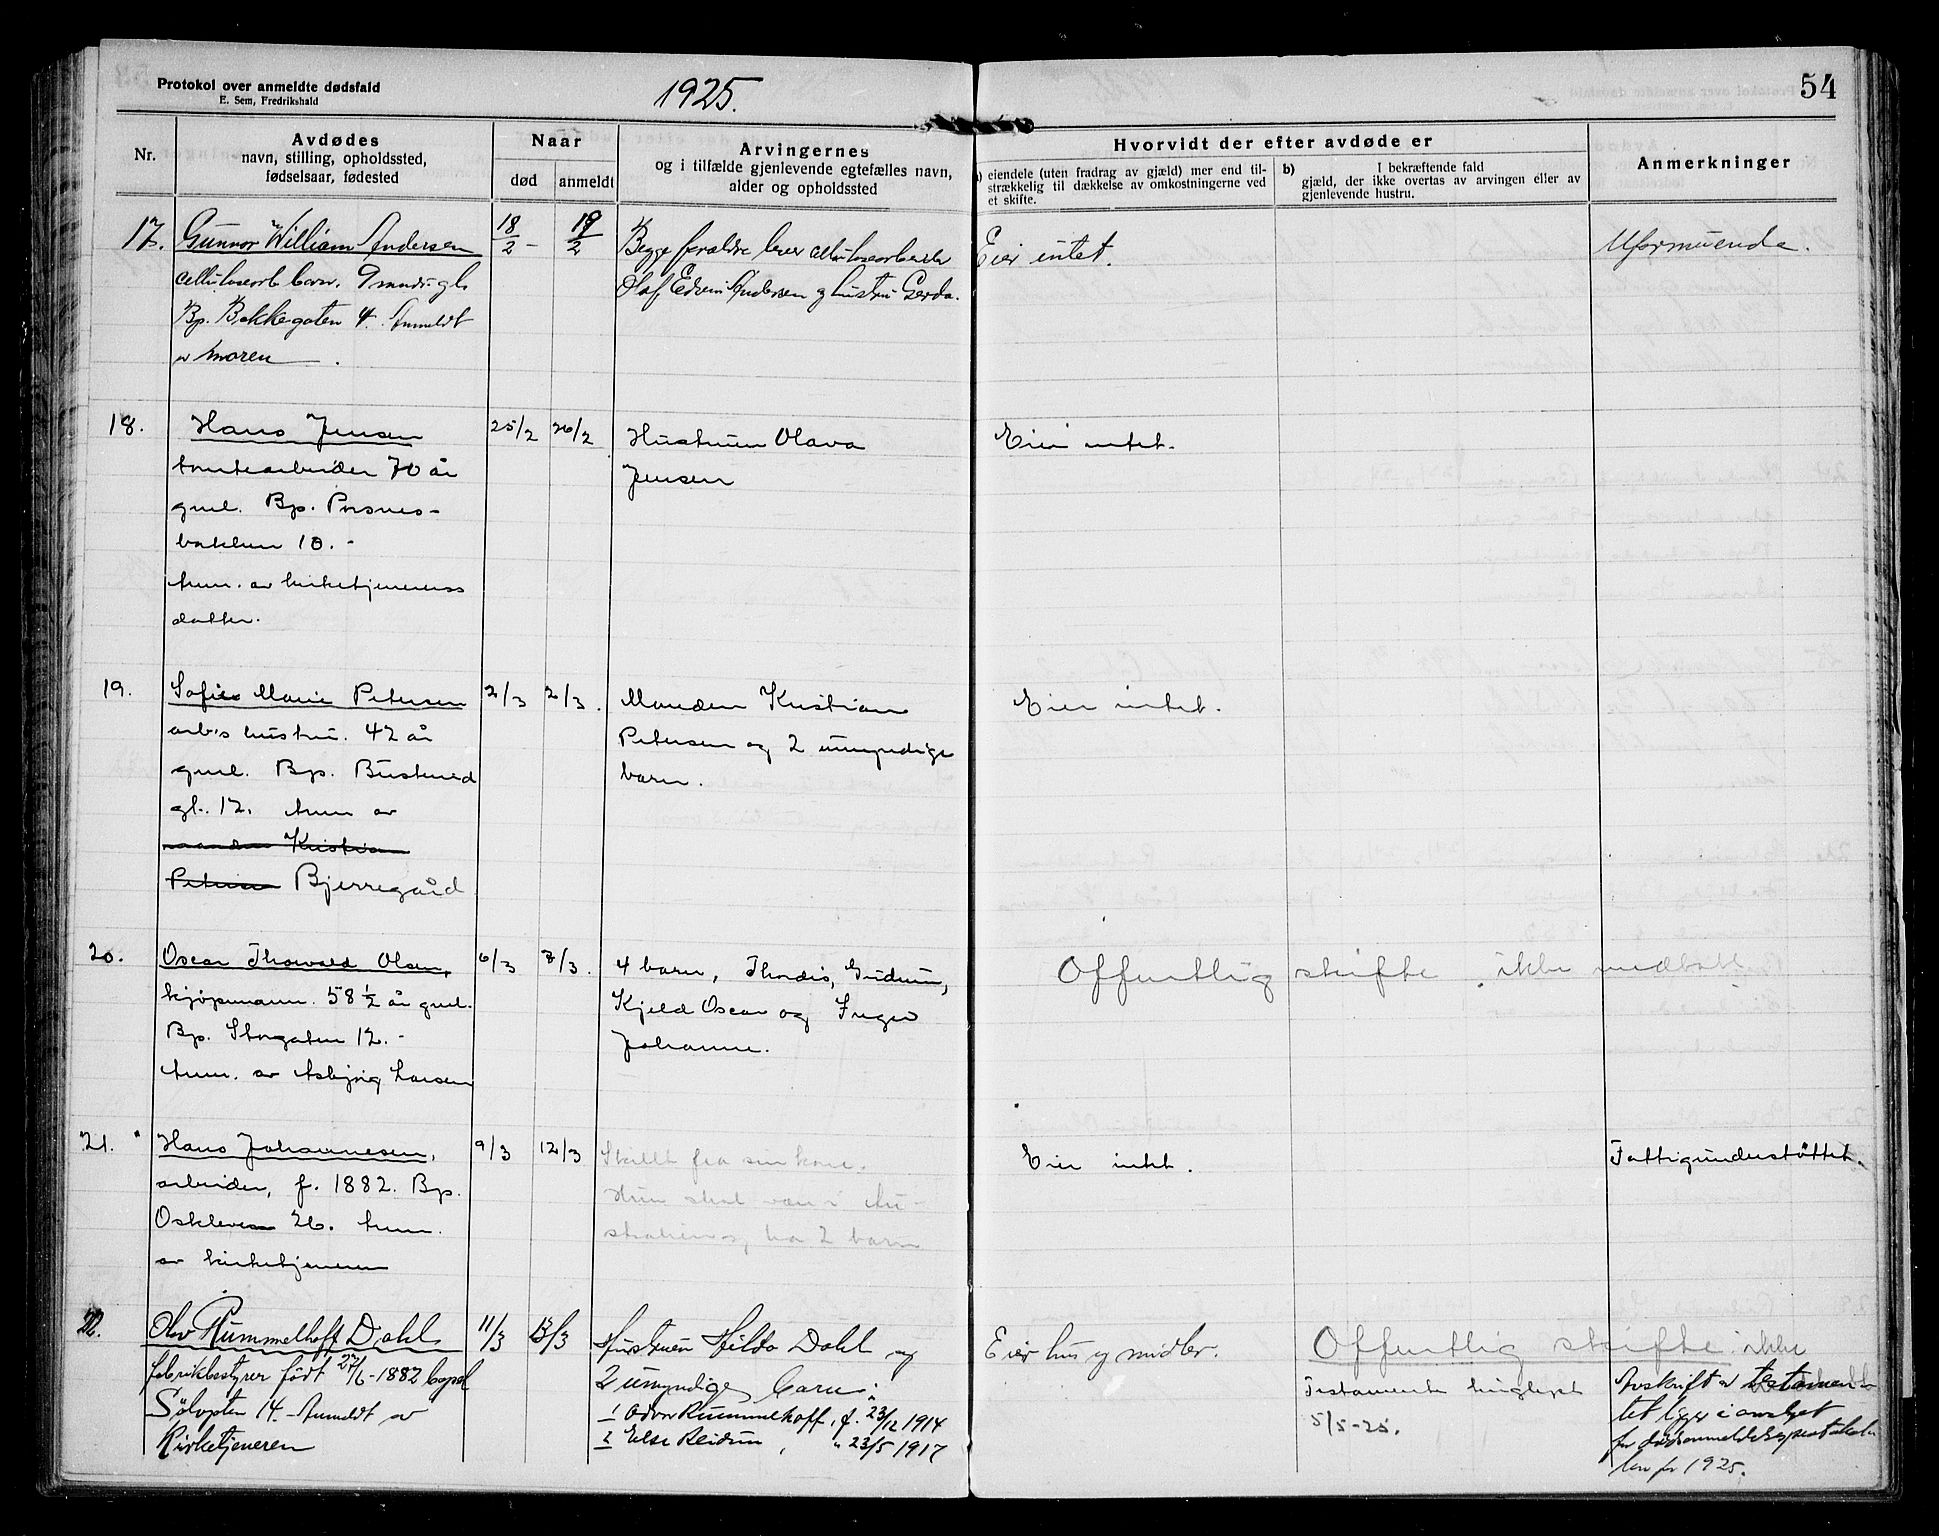 Protokol over anmeldte dødsfald
E. Sem, Fredrikshald
1925.
54
Nr.
Avdødes
navn, stilling, opholdssted,
fødselsaar, fødested
Naar
død
anmeldt
Arvingernes
og i tilfælde gjenlevende egtefælles navn,
alder og opholdssted
Hvorvidt der efter avdøde er
) eiendele (uten fradrag av gjæld) mer end til-
strækkelig til dækkelse av omkostningerne ved
et skifte.
b) I bekræftende fald
gjæld, der ikke overtas av arvingen eller av
gjenlevende hustru.
Anmerkninger
17.
Gunnar William Andersen
celluloseorb barn. 9 mndr. gl.
Bp. Bakkegaten 4. Anmeldt
av moren.
18/2 - 19/2
Begge forældre lever celluloseorbeider
Olaf Edvin Andersen og hustru Gerda.
Eier intet.
Uformuende.
18.
Hans Jensen
tomtearbeider 70 år
gml. Bp. Pesnes-
bakken 10. -
Anm. av kirketjenerens
datter.
25/2 26/2
Hustruen Olava
Jensen
Eier intet.
19.
Sofie Marie Petersen
arb's hustru. 42 år
gml. Bp. Buskned
gl. 12. Anm av
manden Kristian
Petersen Bjerregård
2/3 2/3.
Manden Kristian
Petersen og 2 umyndige
barn.
Eier intet.
20.
Oscar Thorvald Olsen,
kjøpmann. 58 1/2 år gml.
Bp. Storgaten 12. -
Anm. av Asbjørg Larsen
6/3 7/3.
4 barn, Thordis, Gudrun,
Kjeld Oscar og Inger
Johanne.
Offentlig skifte ikke
21.
Hans Johannesen,
arbeider, f. 1882. Bp.
Oskleven 26. Anm.
av kirketjeneren
9/3 12/3
Skillt fra sin kone.
Hun skal være i Au-
stralien og ha 2 barn
Eier intet.
Fattigunderstøttet.
22.
Olav Rummelhoff Dahl
fabrikbestyrer født 27/6-1882 bopel
Sølvgten 14. Anmeldt av
Kirketjeneren
11/3 13/3
Hustruen Hilda Dahl og
2 umyndige barn:
1 Odvar Rummelhoff, f. 23/12 1914
2 Else Reidun, " 23/5 1917
Eier hus og midler.
Offentlig skifte ikke
Testamente tinglyst
5/5-25.
Avskrift av testamen-
tet liger i omslget
for dødsanmeldelsesprotokol-
len for 1925.